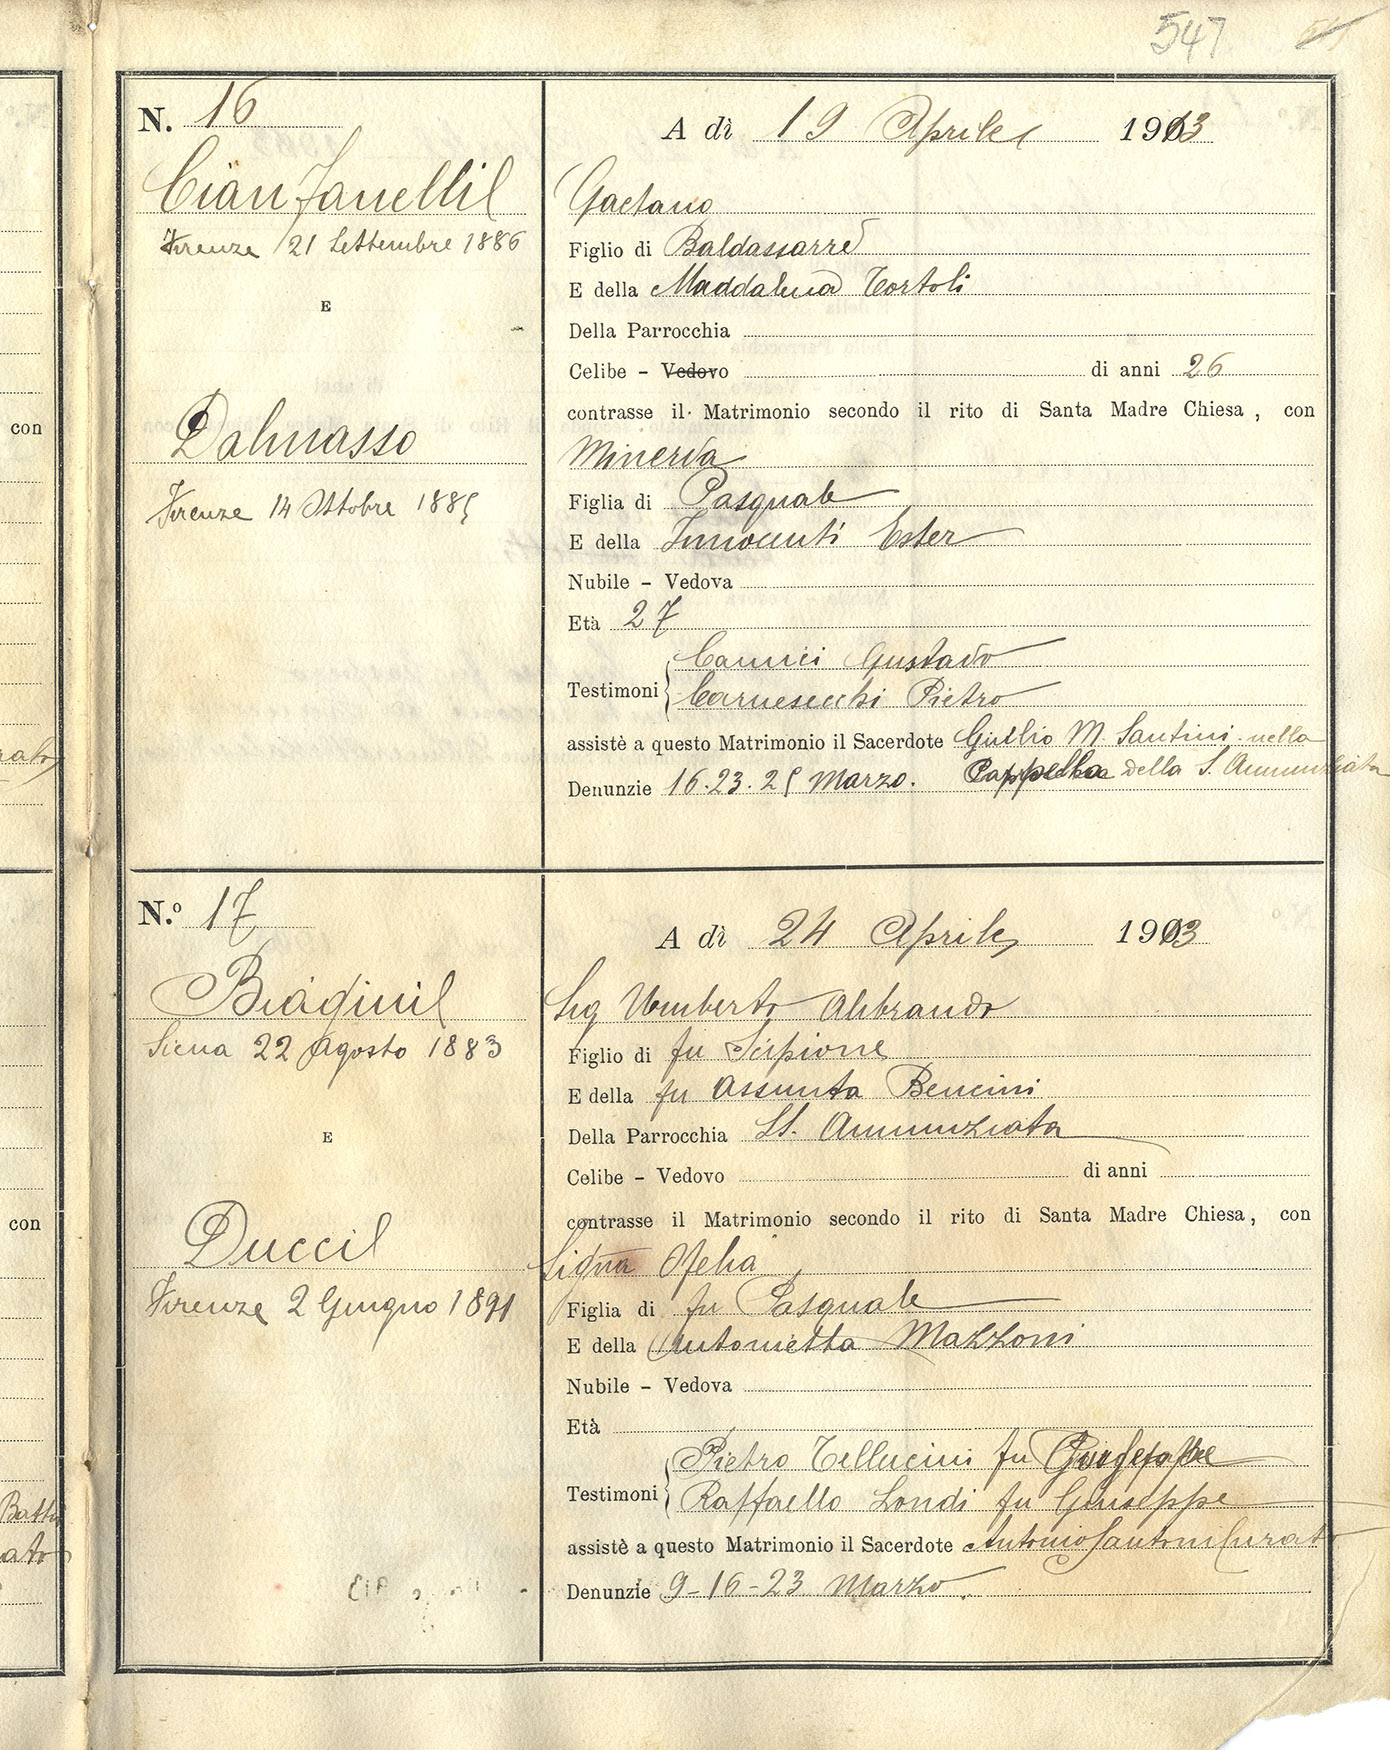 547
N. 16
Cianfanelli
Firenze 21 Settembre 1886
E
Dalmasso
Firenze 14 Ottobre 1885
A dì 19 Aprile 1913
Gaetano
Figlio di Baldassarre
E della Maddalena Tortoli
Della Parrocchia
Celibe - Vedovo di anni 26
contrasse il Matrimonio secondo il rito di Santa Madre Chiesa, con
Minerva
Figlia di Pasquale
E della Innocenti Ester
Nubile - Vedova
Età 27
Cannici Gustavo
Testimoni
Carnesecchi Pietro
assistè a questo Matrimonio il Sacerdote Giulio M. Santini nella
Denunzie 16. 23. 25 Marzo. Cappella della S. Annunziata
N.º 17
Biagini
Siena 22 Agosto 1883
E
Ducci
Firenze 2 Giugno 1891
A dì 24 Aprile 1913
Sig Umberto Alibrando
Figlio di fu Scipione
E della fu Assunta Bencini
Della Parrocchia SS. Annunziata
Celibe - Vedovo di anni
contrasse il Matrimonio secondo il rito di Santa Madre Chiesa, con
Signa Ofelia
Figlia di fu Pasquale
E della Antonietta Mazzoni
Nubile - Vedova
Età
Pietro Tellucini fu
Testimoni
Raffaello Londi fu Giuseppe
assistè a questo Matrimonio il Sacerdote Antonio Santoni Curato
Denunzie 9-16-23 Marzo.
con
con